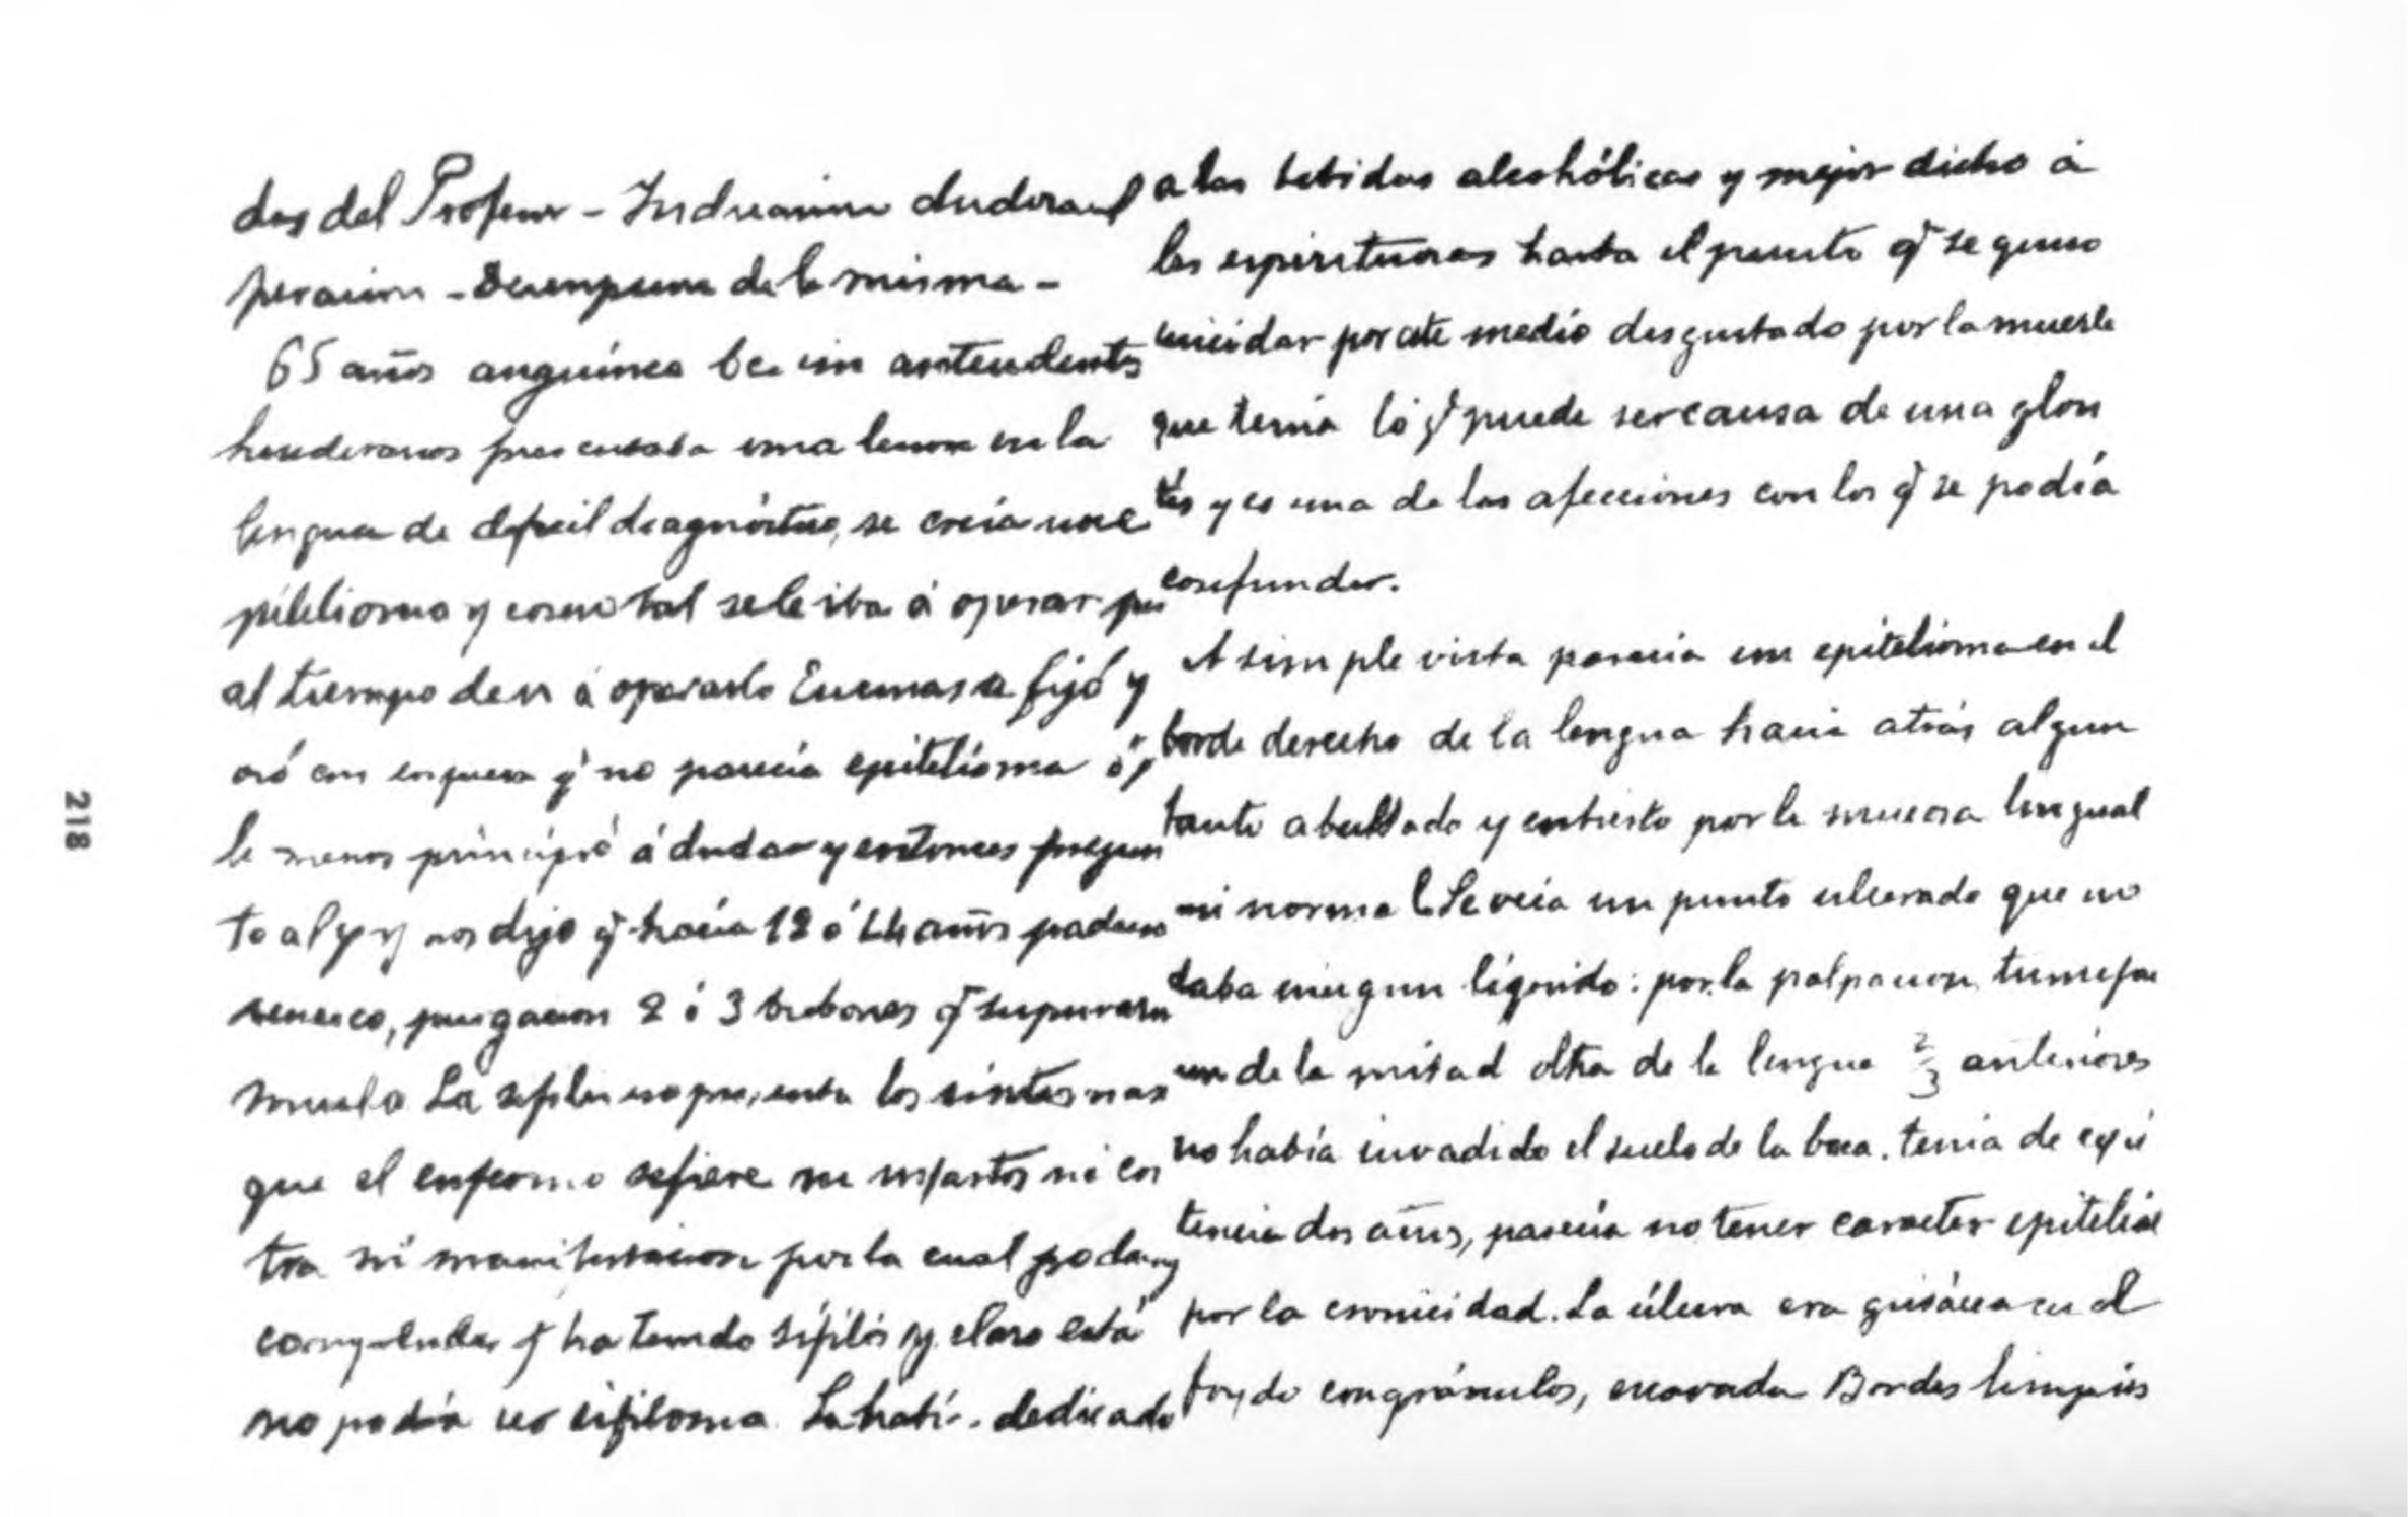 das del Profesor - Indicacion dudosa
peracion - de la misma -
65 años sin antecedentes
presentaba una lesion en la
lengua de dificil diagnóstico, se creía un e
pitelioma y como tal se le iba á operar pe
al tiempo de ir á operarlo fijó y
con q̃ no parecía epitelioma ó p
lo menos principió á dudar y entonces pregun
to al y nos dijo q̃ hacía 12 ó 14 años padecio
venereo, purgacion 2 ó 3 bubones q̃ supuraron
La sifilis no presenta los síntomas
que el enfermo refiere ni infartos ni cos
tra ni manifestacion por la cual podamos
q̃ ha tenido sífilis y claro está
no podía ser sifiloma. Se había dedicado
a las bebidas alcohólicas y mejor dicho á
las espirituosas hasta el punto q̃ se quiso
suicidar por este medio disgustado por la muerte
que tenía lo q̃ puede ser causa de una glosi
tis y es una de las afecciones con los q̃ se podía
confundir.
A simple vista parecia un epitelioma en el
borde derecho de la lengua hacia atrás algun
tanto abultado y cubierto por la mucosa lingual
casi normal Se veia un punto ulcerado que no
daba ningun líquido: por la palpacion, tumefac
cion de la mitad dcha de la lengua 2/3 anteriores
no había invadido el suelo de la boca. tenia de exis
tencia dos años, parecía no tener caracter epitelial
por la cronicidad. La úlcera era grisácea en el
fondo con gránulos, excavada Bordes limpios
218